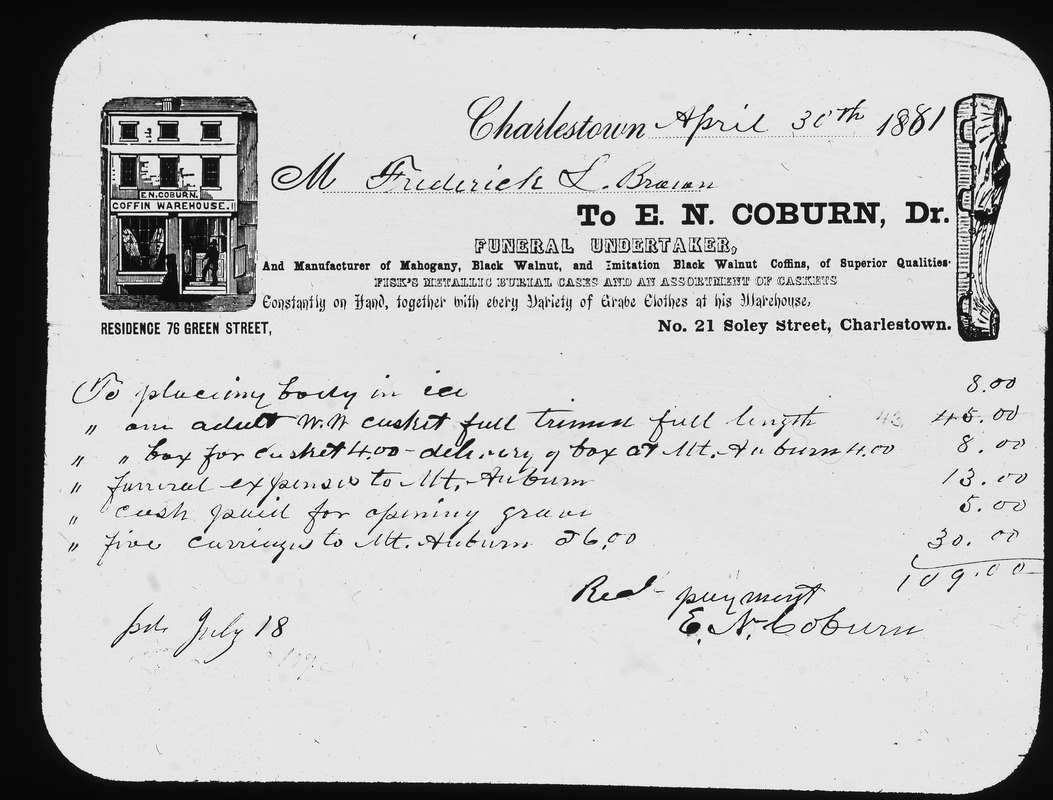 E.N. COBURN.
COFFIN WAREHOUSE.
Charlestown April 30th 1881
M Frederick L. Brown
To E. N. COBURN, Dr.
FUNERAL UNDERTAKER,
And Manufacturer of Mahogany, Black Walnut, and Imitation Black Walnut Coffins, of Superior Qualities.
FISK'S METALLIC BURIAL CASES AND AN ASSORTMENT OF CASKETS
Constantly on Hand, together with every Variety of Grave Clothes at his Warehouse,
RESIDENCE 76 GREEN STREET, No. 21 Soley Street, Charlestown.
To placing body in ice 8.00
" one adult W.W casket full trimed full length 43 45.00
" " box for casket 4.00 - delivery of box at Mt. Auburn 4.00 8.00
" funeral expenses to Mt. Auburn 13.00
" cash paid for opening grave 5.00
" five carriages to Mt. Auburn @ 6.00 30.00
109.00
Recd payment
E. N. Coburn
pd. July 18